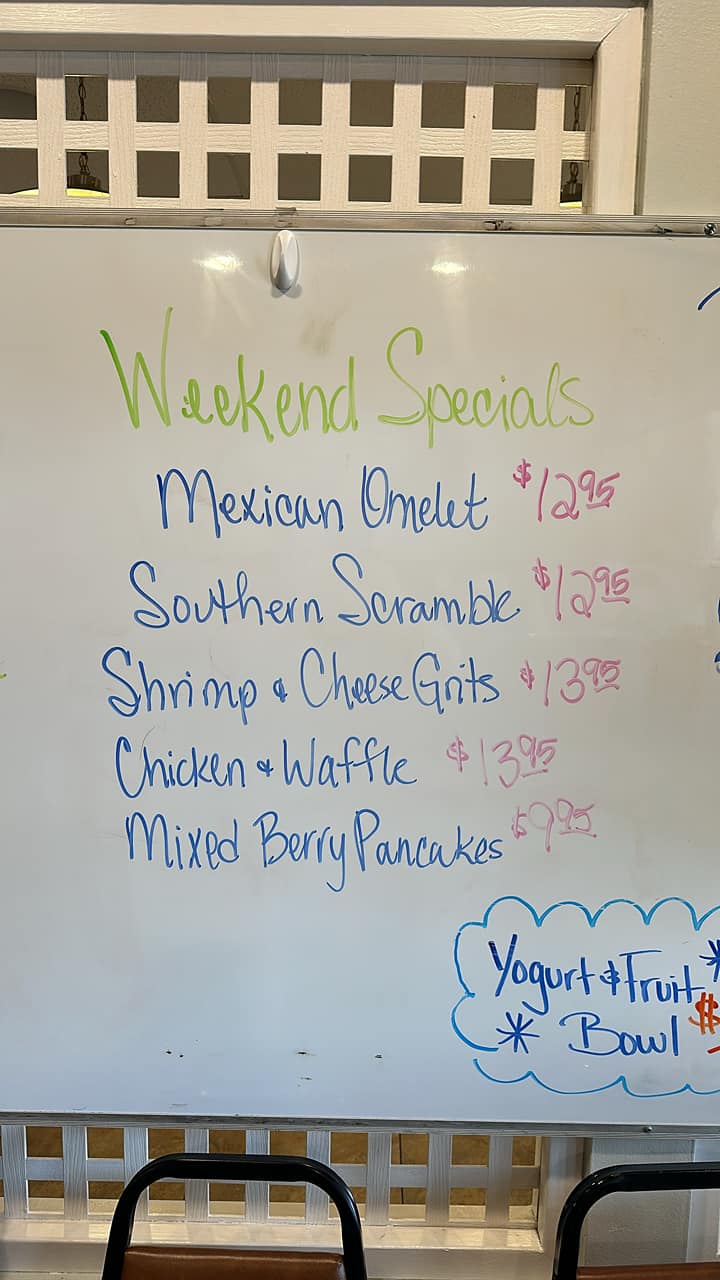 Weekend Specials
Mexican Omelet $12.95
Southern Scramble $12.95
Shrimp & Cheese Grits $13.95
Chicken & Waffle $13.95
Mixed Berry Pancakes $9.95
Yogurt & Fruit
* Bowl $